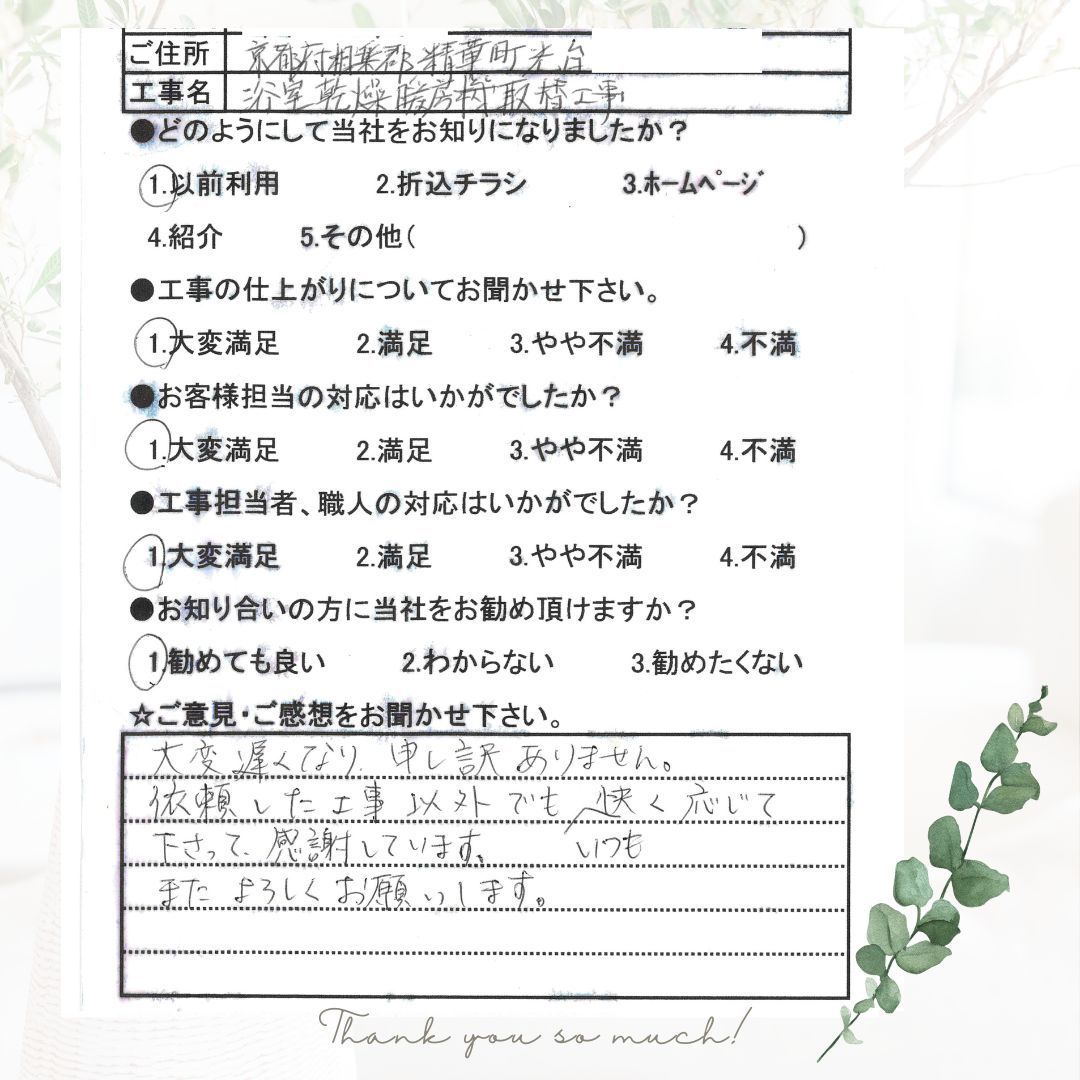 ご住所 京都府相楽郡精華町光台
工事名 浴室乾燥暖房機取替工事
●どのようにして当社をお知りになりましたか？
1.以前利用 2.折込チラシ 3.ホームページ
4.紹介 5.その他( )
●工事の仕上がりについてお聞かせ下さい。
1.大変満足 2.満足 3.やや不満 4.不満
●お客様担当の対応はいかがでしたか？
1.大変満足 2.満足 3.やや不満 4.不満
●工事担当者、職人の対応はいかがでしたか？
1.大変満足 2.満足 3.やや不満 4.不満
●お知り合いの方に当社をお勧め頂けますか？
1.勧めても良い 2.わからない 3.勧めたくない
☆ご意見・ご感想をお聞かせ下さい。
大変遅くなり、申し訳ありません。
依頼した工事以外でも快く応じて
下さって、感謝しています。 いつも
またよろしくお願いします。
Thank you so much!